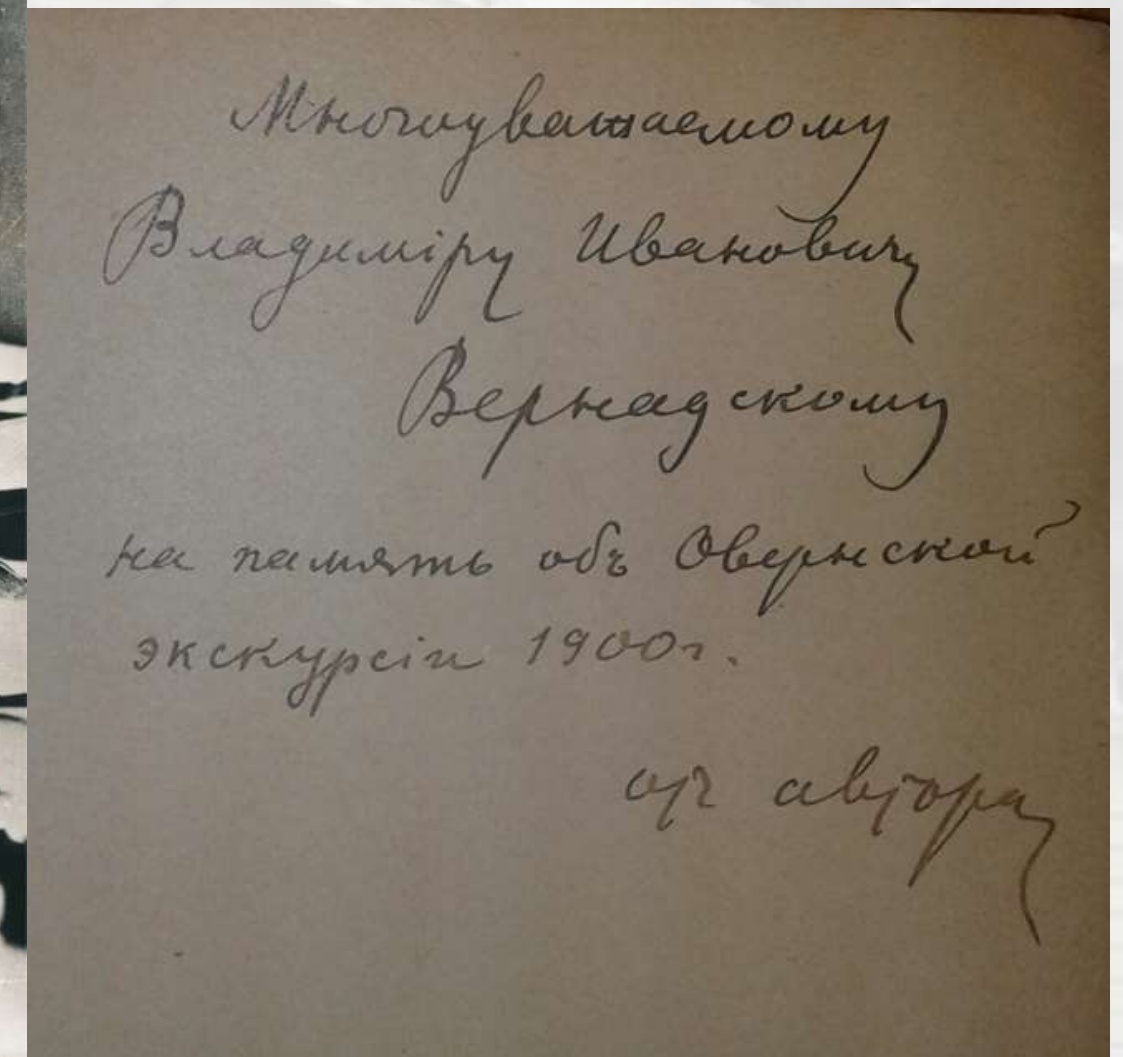 Многоуважаемому
Владиміру Ивановичу
Вернадскому
на память объ Овернской
экскурсіи 1900г.
отъ автора